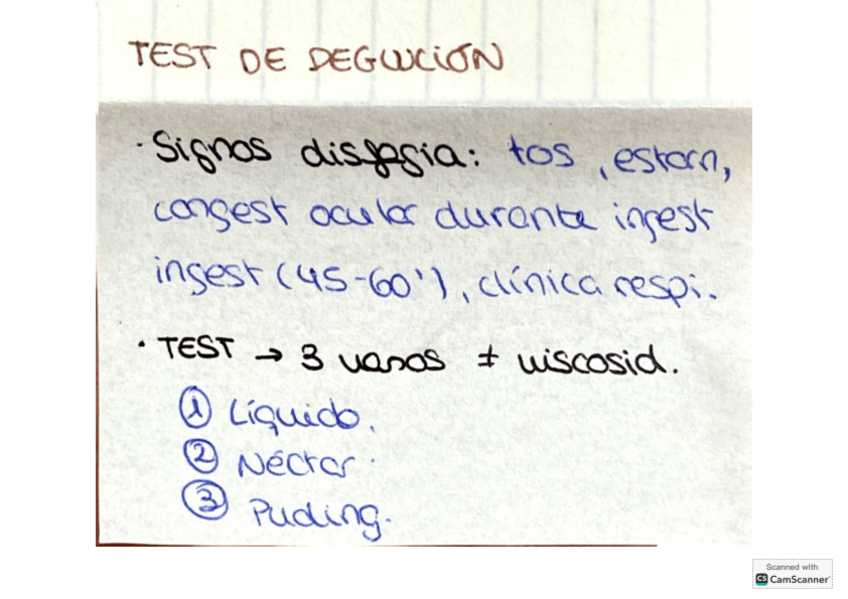 TEST DE DEGLUCIÓN
· Signos disfagia: tos, estorn,
congest ocular durante ingest
ingest (45-60'), clínica respi.
· TEST → 3 vasos ≠ viscosid.
① Líquido.
② Néctar.
③ Puding.
Scanned with
CS CamScanner